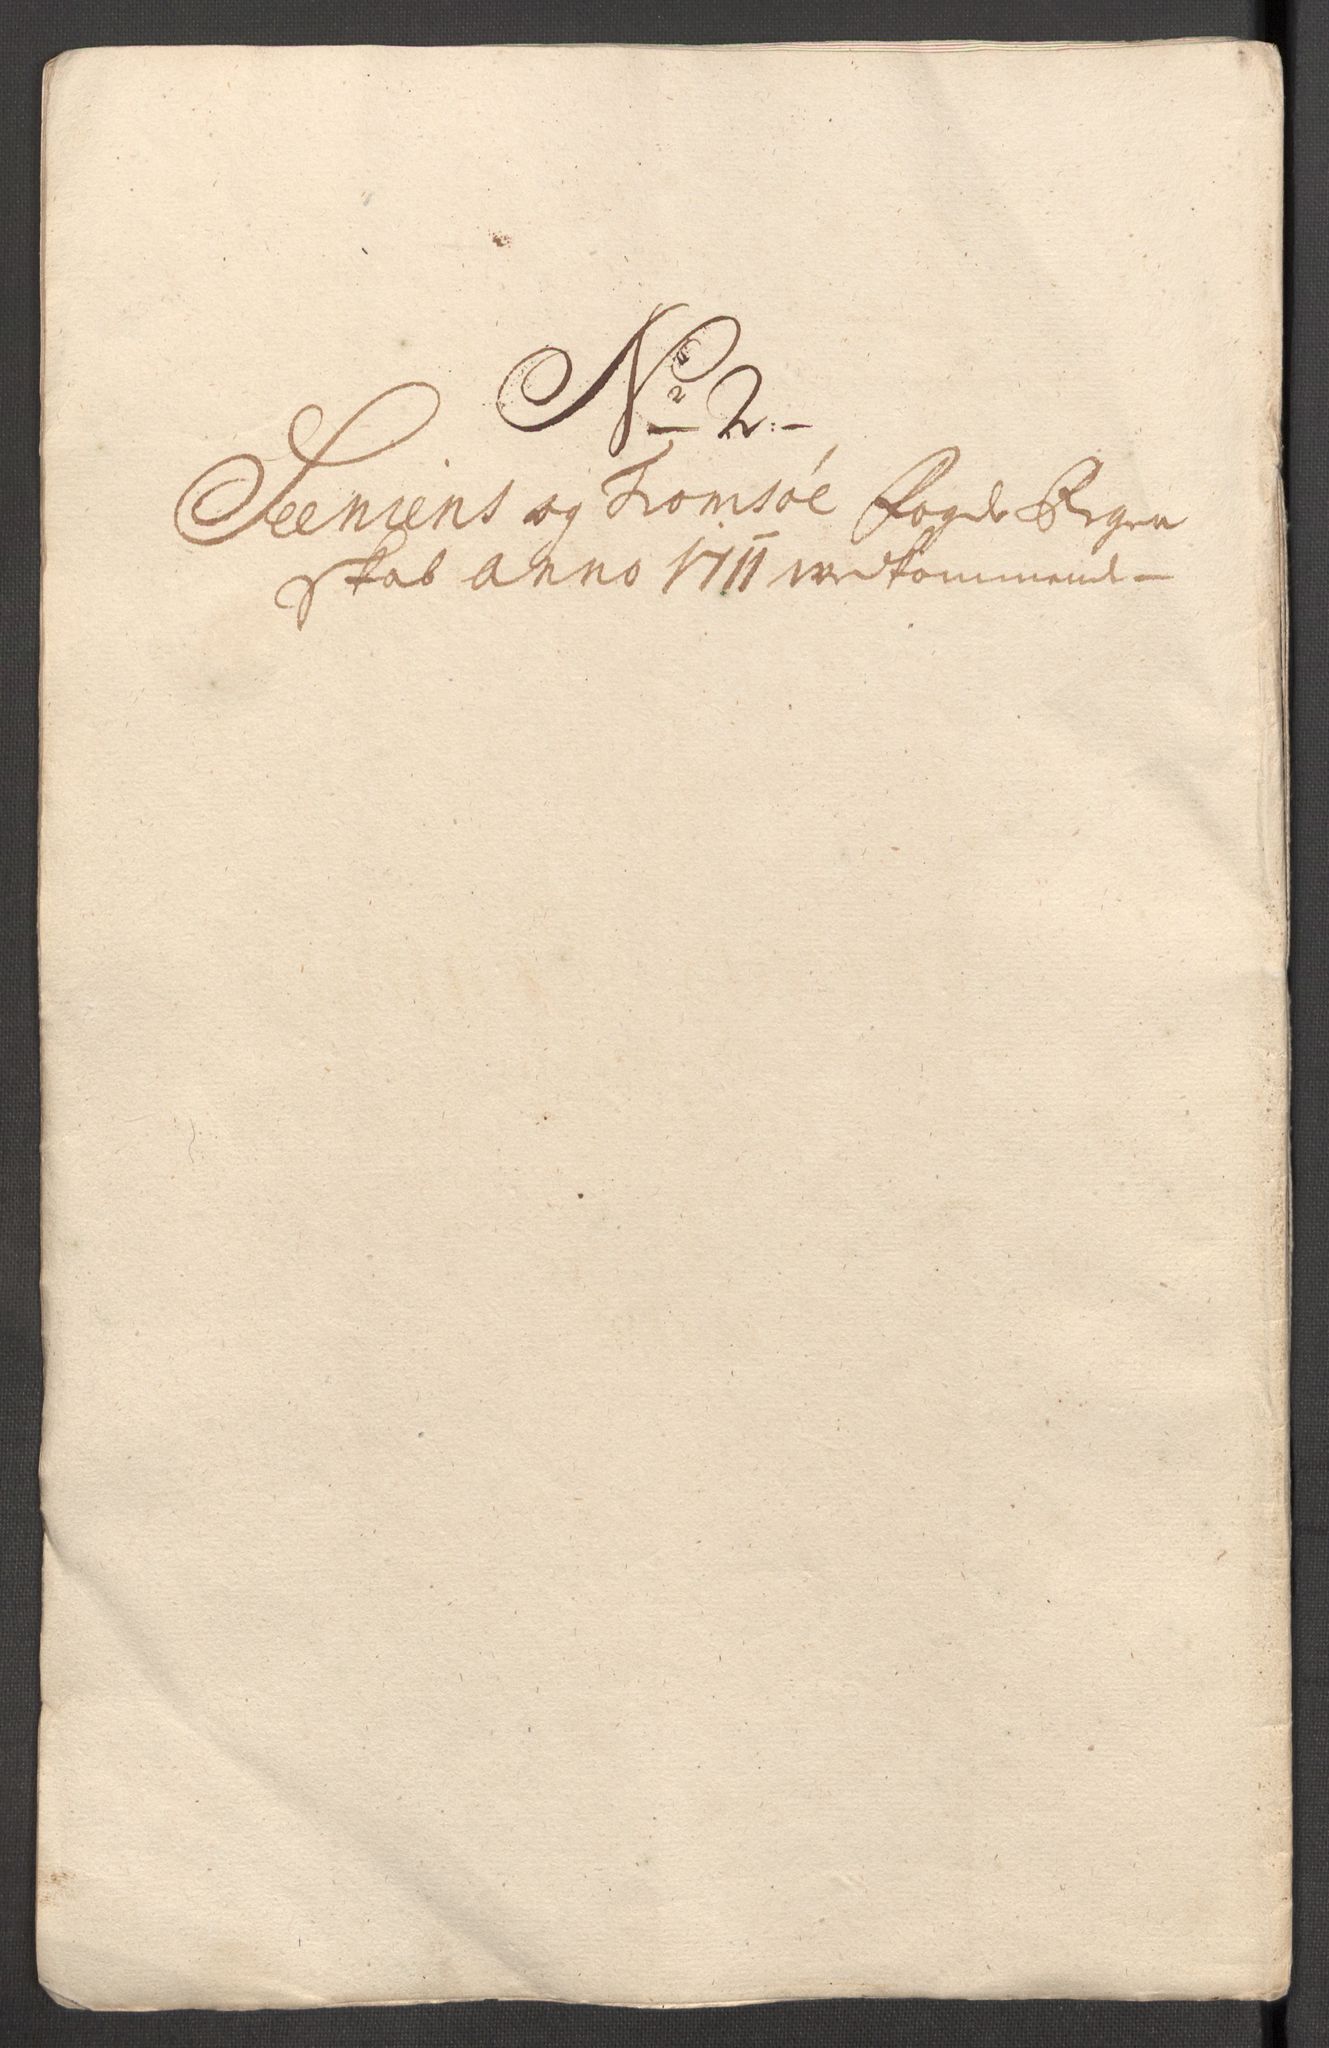 No 2.
Seeniens og Tromsøe Fogde Regen
skab anno 1711 vedkommend